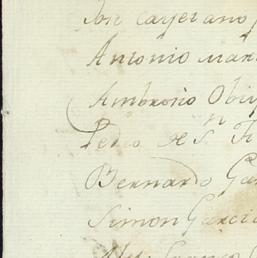 Jos Cayetano
Antonio Mar
Ambrosio Obi
Pedro de Sn Fr
Bernardo Gar
Simon Garcia